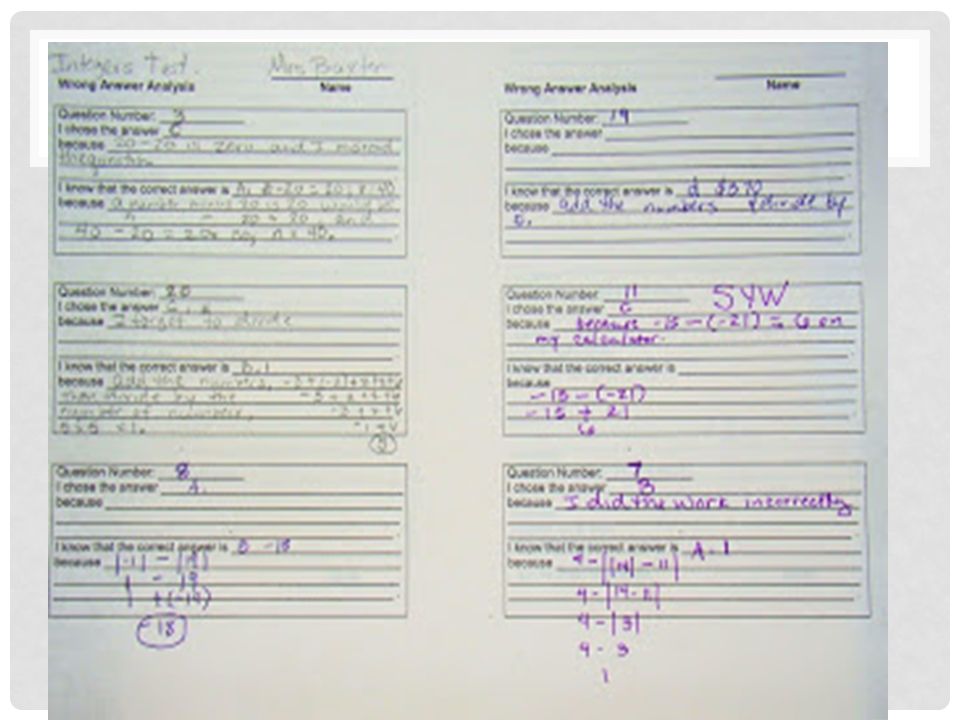 Integers Test.
Mrs Baxter
Wrong Answer Analysis
Name
Question Number: 3
I chose the answer C
because 20-20 is zero and I misread
the question.
I know that the correct answer is A.
because
40 - 20 = 20 so, n = 40.
Question Number: 20
I chose the answer C
because I forgot to divide
I know that the correct answer is B. 1
because add the numbers,
then divide by the
number of numbers,
Question Number: 8
I chose the answer A.
because
I know that the correct answer is B -18
because |-1| - |19|
1 - 19
1 + (-19)
-18
Wrong Answer Analysis
Name
Question Number: 19
I chose the answer
because
I know that the correct answer is d $370
because add the numbers & divide by
Question Number: 11
SYW
I chose the answer C
because because -15-(-21) = 6 on
my calculator.
I know that the correct answer is
because
-15-(-21)
-15 + 21
6
Question Number: 7
I chose the answer B
because I did the work incorrectly
I know that the correct answer is A. 1
because 4-|14|-11|
4-|14-11|
4-|3|
4-3
1